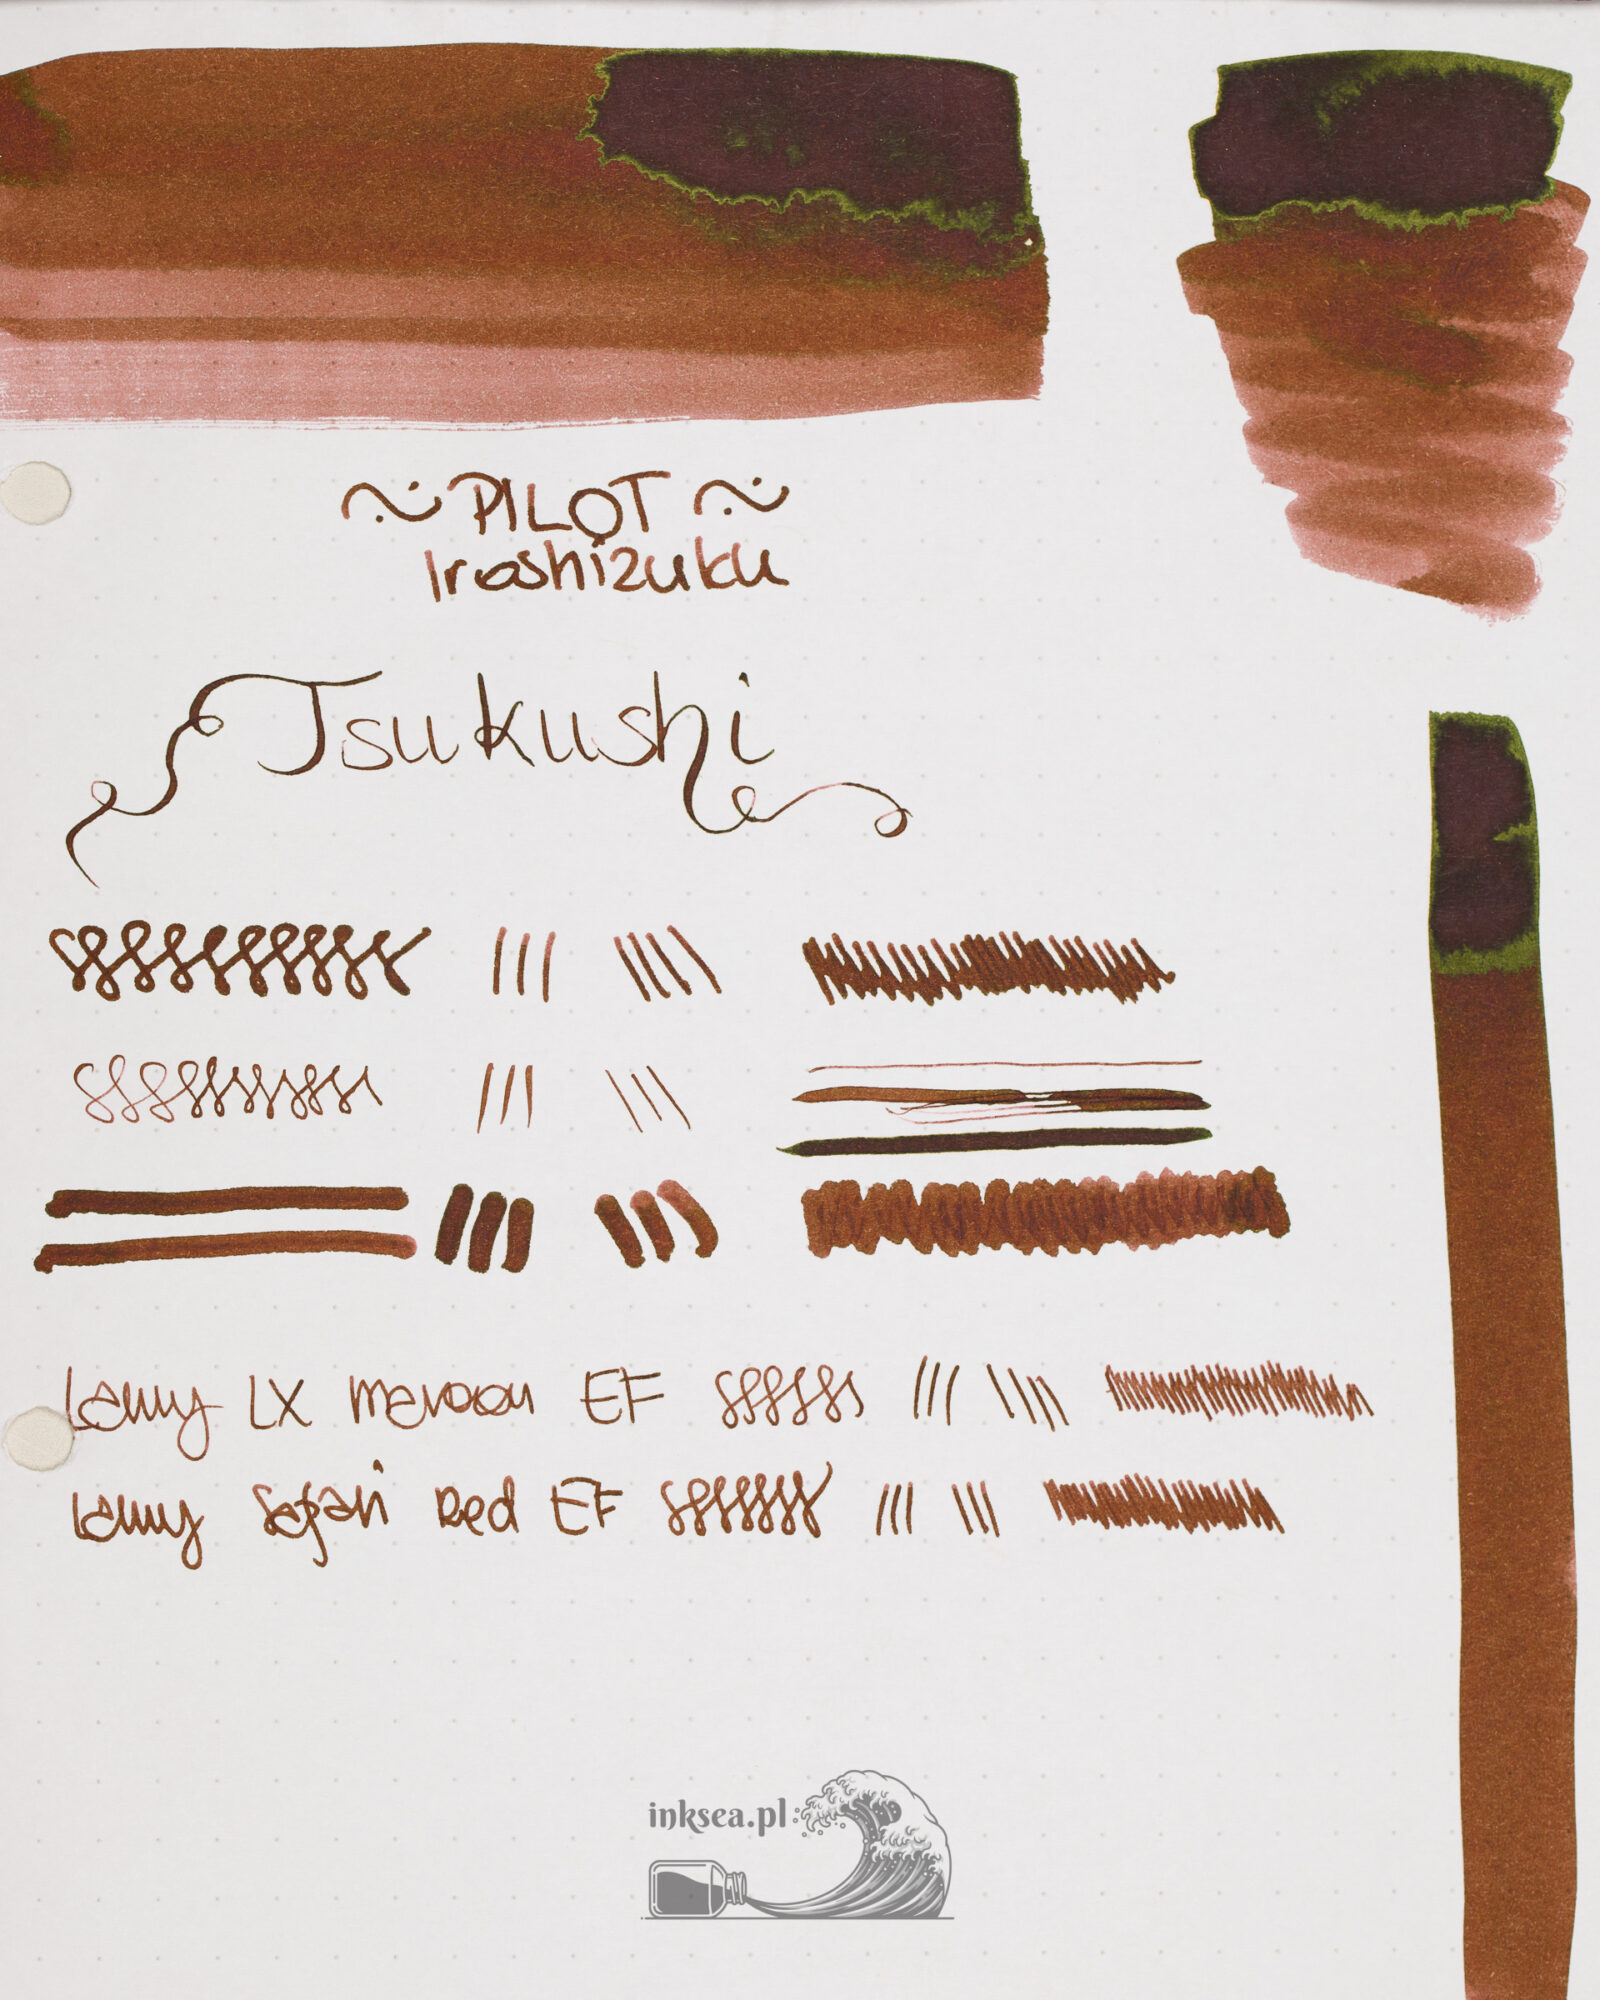 ~ PILOT ~
Iroshizuku
Tsukushi
Lamy LX maroon EF
Lamy Safari Red EF
inksea.pl